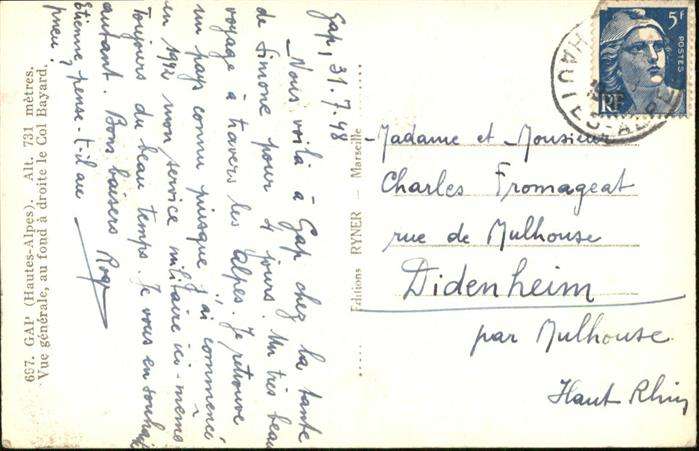 Gap, 31.7.48
Nous voilà à Gap chez la tante
de Simone pour 4 jours. Un très beau
voyage à travers les Alpes. Je retrouve
un pays connu puisque j'ai commencé
en 1942 mon service militaire ici-même
Toujours du beau temps. Je vous en souhai
autant. Bons baisers Roger
Etienne pense-t-il au
pneu ?
657. GAP (Hautes-Alpes). Alt. 731 mètres.
Vue générale, au fond à droite le Col Bayard.
Editions RYNER - Marseille
5F
POSTES
RF
HAUTES-ALPES
Madame et Monsieur
Charles Fromageat
rue de Mulhouse
Didenheim
par Mulhouse
Haut Rhin